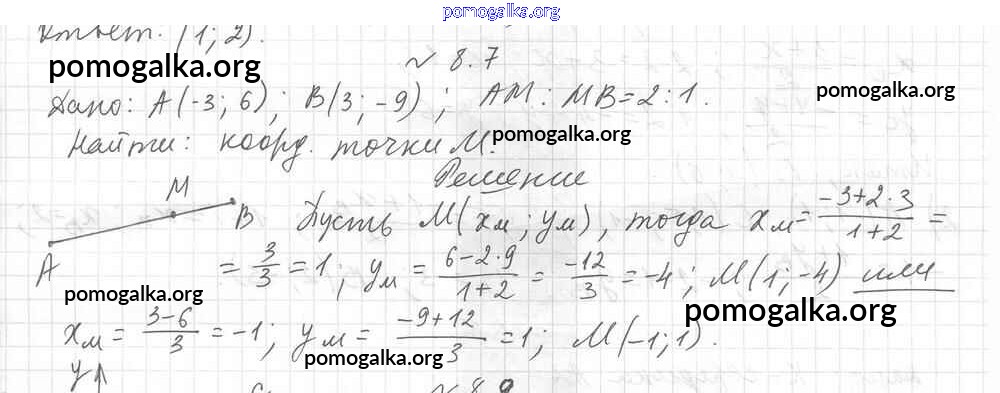 pomogalka.org
Ответ: (1; 2).
№ 8.7
pomogalka.org
Дано: A(-3; 6); B(3; -9); AM : MB = 2 : 1.
pomogalka.org
Найти: коорд. точки M.
pomogalka.org
Решение
M
B
A
Пусть M(xм; yм), тогда xм = (-3+2·3)/(1+2) =
= 3/3 = 1; yм = (6-2·9)/(1+2) = -12/3 = -4; M(1; -4) или
pomogalka.org
pomogalka.org
xм = (3-6)/3 = -1; yм = (-9+12)/3 = 1; M(-1; 1).
pomogalka.org
y